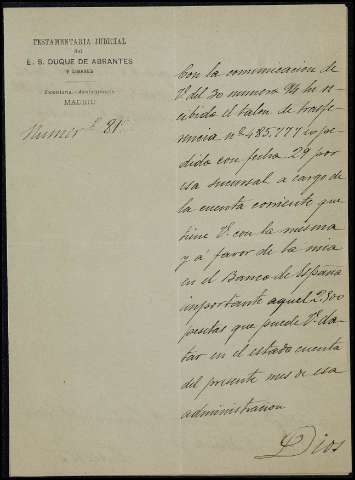 TESTAMENTARIA JUDICIAL
del
E. S. DUQUE DE ABRANTES
Y LINARES
MADRID
Número 81
Con la comunicacion de
V. del 30 numero 94 he re-
cibido el talon de trasfe-
rencia nº 485.777 espe-
dido con fecha 29 por
esa sucursal a cargo de
la cuenta corriente que
tiene V. con la misma
y á favor de la mia
en el Banco de España
importante aquel 2,500
pesetas que puede V. da-
tar en el estado cuenta
del presente mes de esa
administracion
Dios